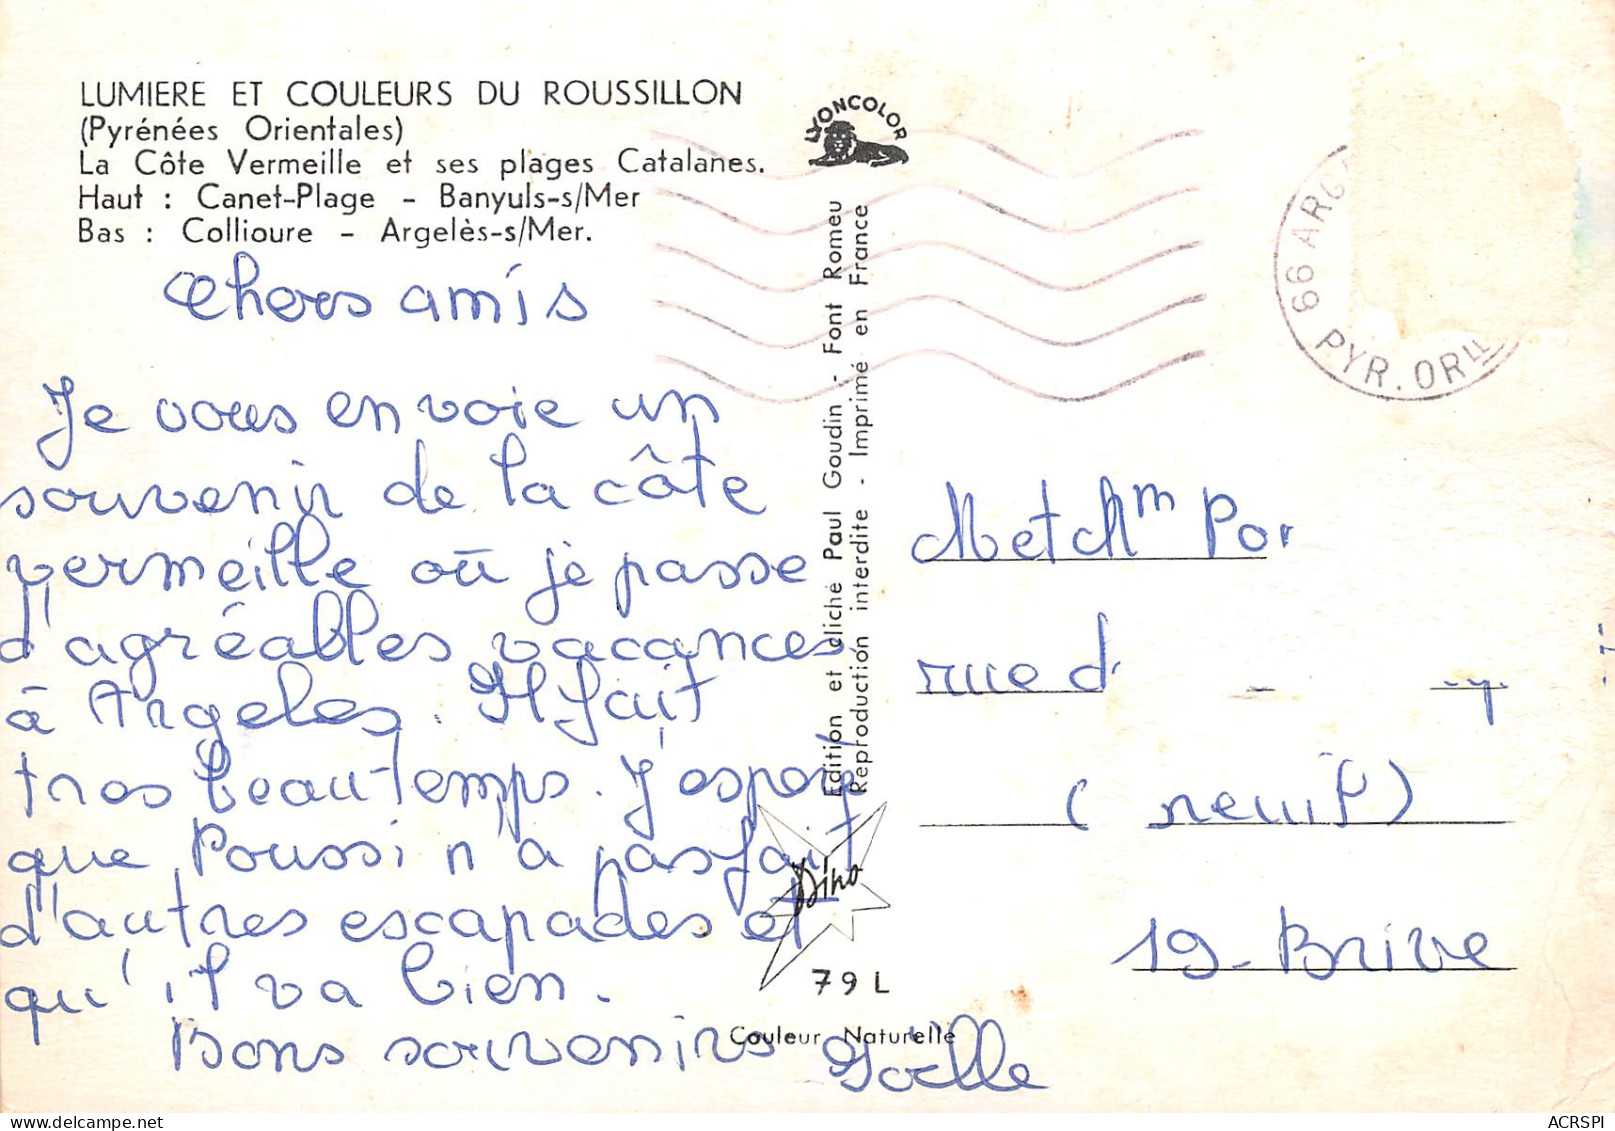 LUMIERE ET COULEURS DU ROUSSILLON
(Pyrénées Orientales)
La Côte Vermeille et ses plages Catalanes.
Haut : Canet-Plage - Banyuls-s/Mer
Bas : Collioure - Argelès-s/Mer.
Chers amis
Je vous envoie un
souvenir de la côte
vermeille où je passe
d'agréables vacances
à Argeles. Il fait
tres beau temps. J'espere
que Poussi n'a pas fait
d'autres escapades et
qu'il va bien.
Bons souvenirs Joëlle
LYONCOLOR
Edition et cliché Paul Goudin - Font Romeu
Reproduction interdite - Imprimé en France
Dino
79 L
Couleur Naturelle
66 ARG
PYR. OR
M et Mm Por
rue d
(neuif)
19 - Brive
ACRSPI